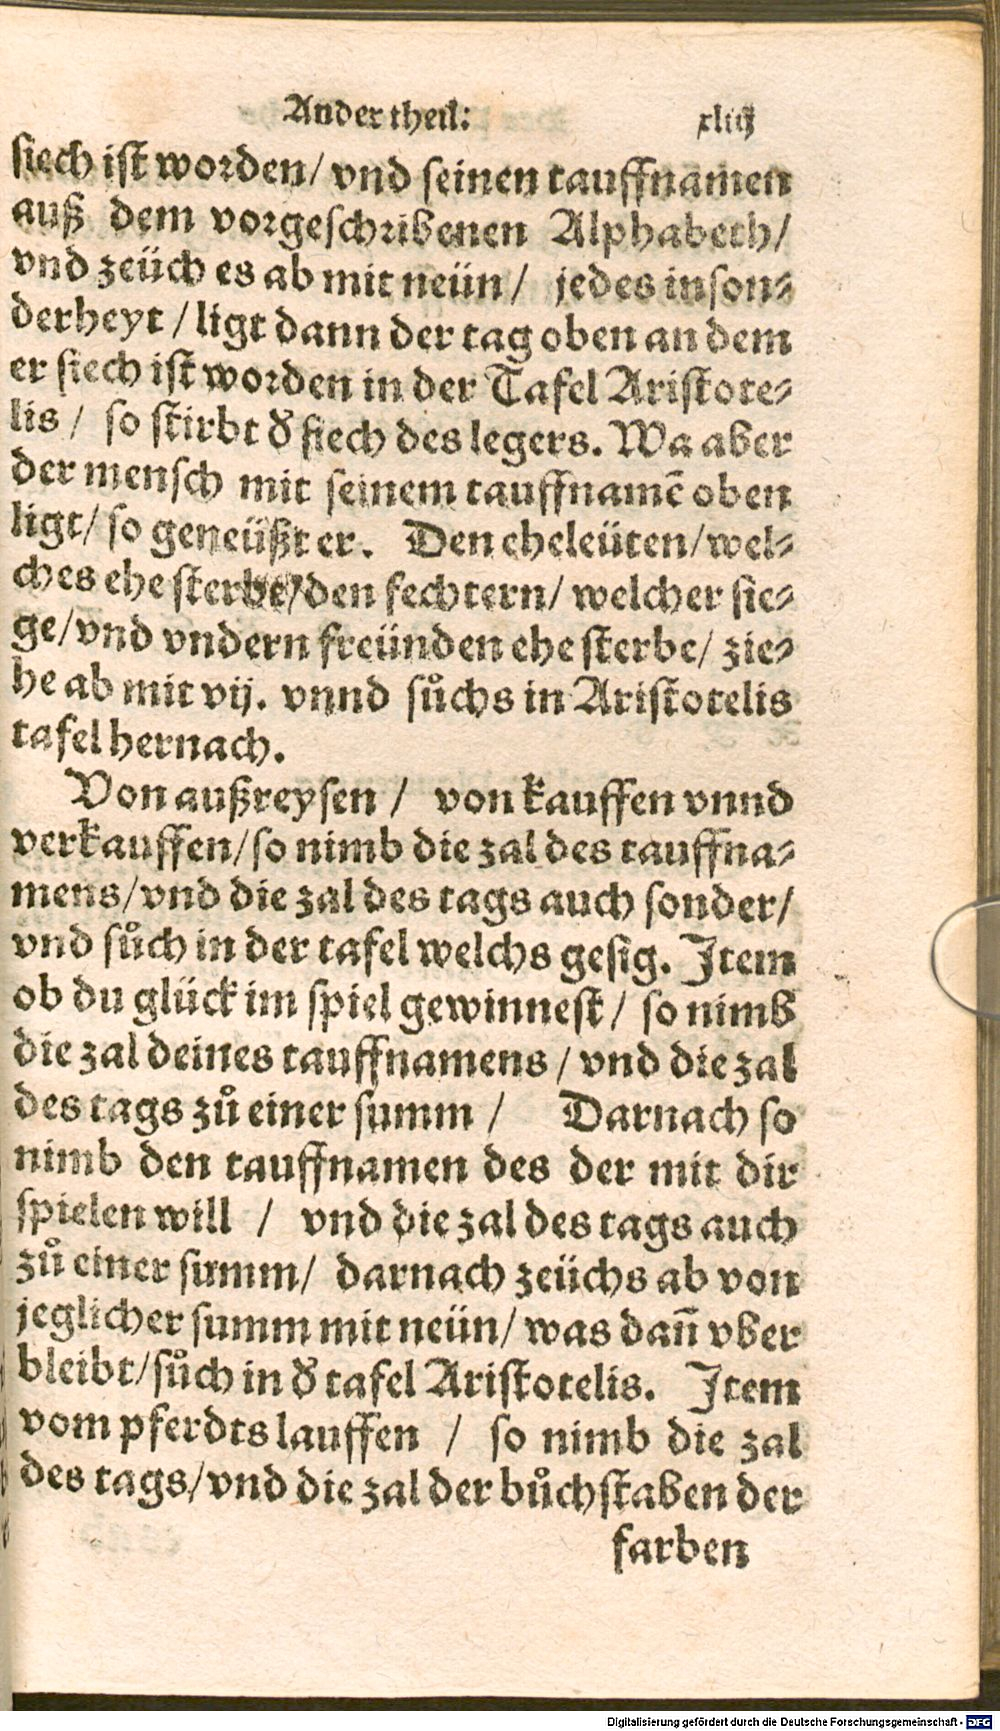 Ander theil: xliij
siech ist worden/ vnd seinen tauffnamen
auß dem vorgeschribenen Alphabeth/
vnd zeüch es ab mit neün / jedes inson⸗
derheyt / ligt dann der tag oben an dem
er siech ist worden in der Tafel Aristote⸗
lis / so stirbt d̕ siech des legers. Wa aber
der mensch mit seinem tauffnamē oben
ligt/ so geneüßt er. Den eheleüten/ wel⸗
ches ehe sterbe/ den fechtern/ welcher sie⸗
ge/ vnd vndern freünden ehe sterbe/ zie⸗
he ab mit vij. vnnd sůchs in Aristotelis
tafel hernach.
Von außreysen / von kauffen vnnd
verkauffen/ so nimb die zal des tauffna⸗
mens/ vnd die zal des tags auch sonder/
vnd sůch in der tafel welchs gesig. Item
ob du glück im spiel gewinnest / so nimb
die zal deines tauffnamens / vnd die zal
des tags zů einer summ / Darnach so
nimb den tauffnamen des der mit dir
spielen will / vnd die zal des tags auch
zů einer summ/ darnach zeüchs ab von
jeglicher summ mit neün/ was dañ vber
bleibt/ sůch in d̕ tafel Aristotelis. Item
vom pferdts lauffen / so nimb die zal
des tags/ vnd die zal der bůchstaben der
farben
Digitalisierung gefördert durch die Deutsche Forschungsgemeinschaft - DFG